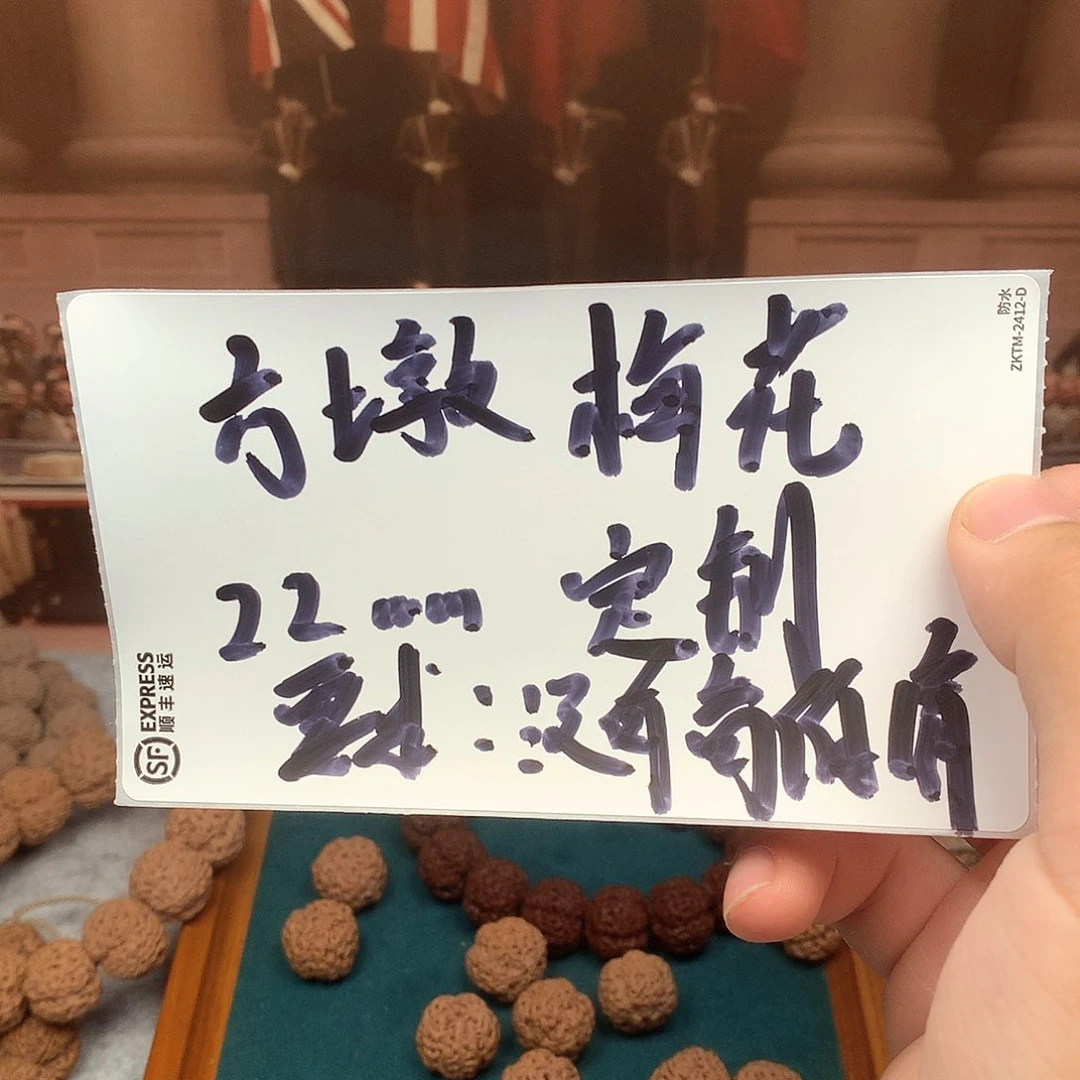 方墩 梅花
22mm 定制
要求：没有
有
防水
ZKTM-2412-D
SF EXPRESS
顺丰速运